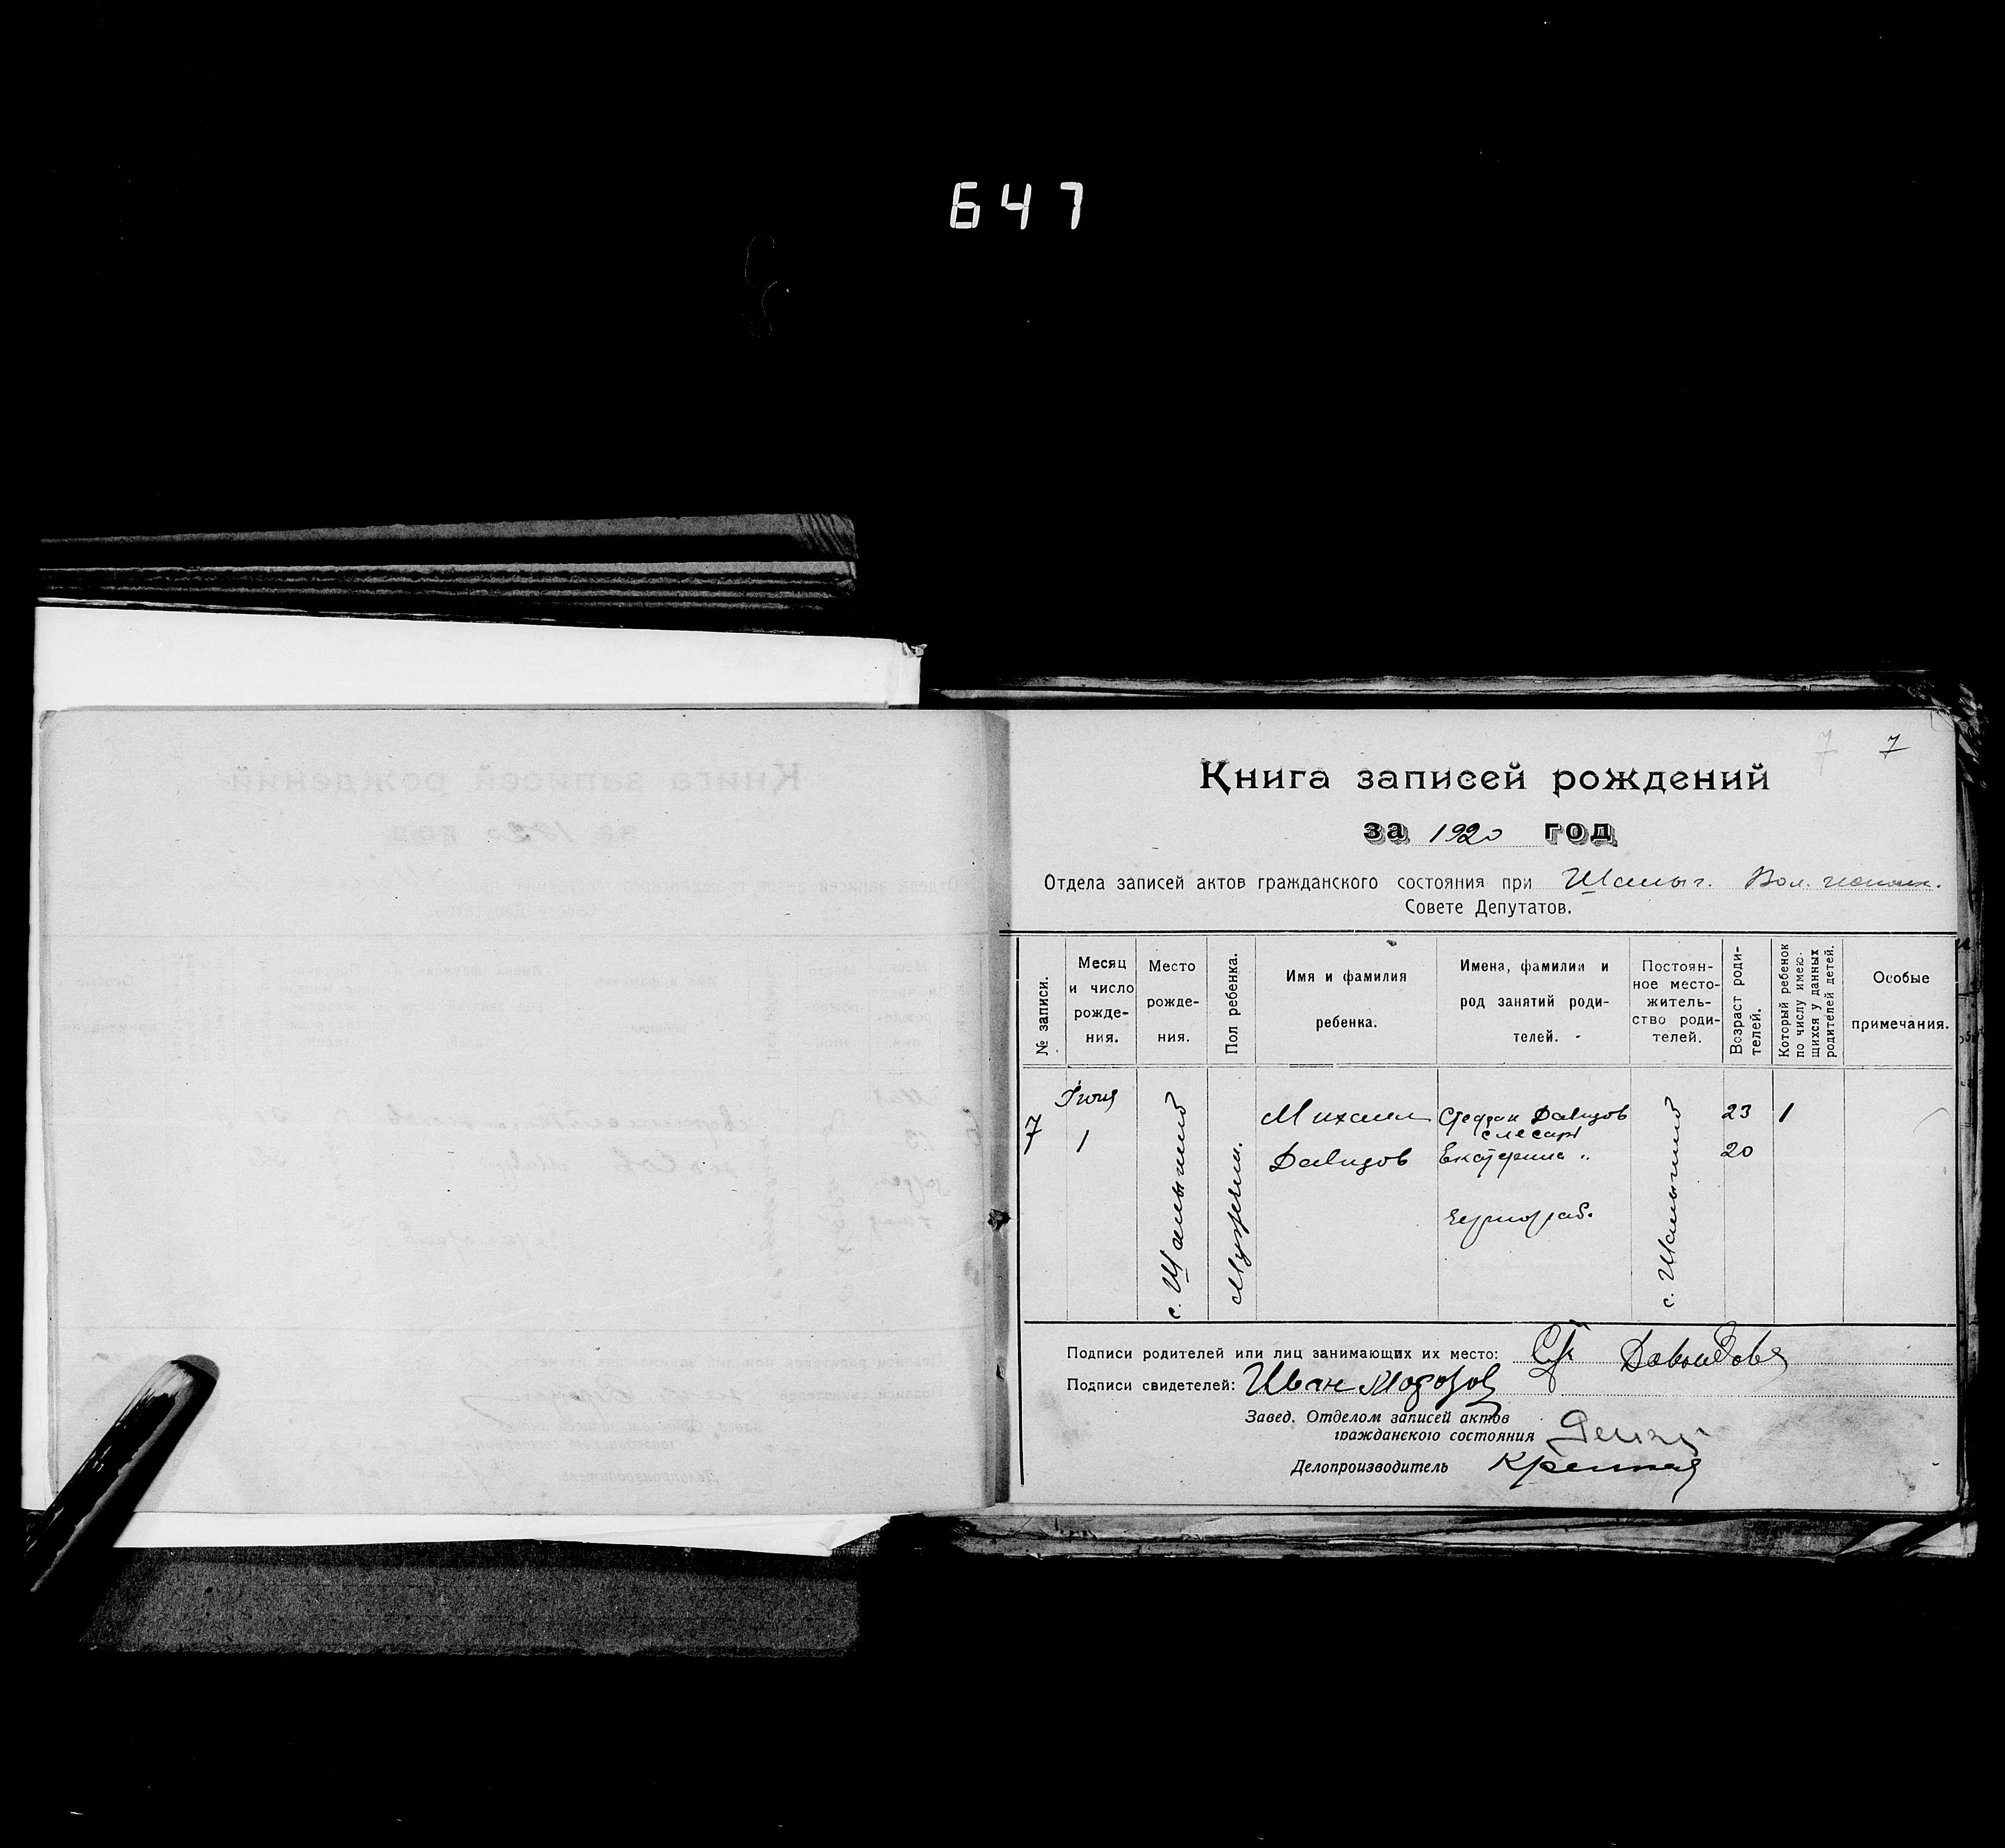 647
7 7
Книга записей рождений
за 1920 год
Отдела записей актов гражданского состояния при Шамыг. Вол.
Совете Депутатов.
№ записи.
Месяц и число рожде-ния.
Место рожде-ния.
Пол ребенка.
Имя и фамилия ребенка.
Имена, фамилии и род занятий роди-телей.
Постоян-ное место-житель-ство роди-телей.
Возраст роди-телей.
Который ребенок по числу имею-щихся у данных родителей детей.
Особые примечания.
7
Июня
1
с.
Мужчин.
Михаил
Давидов
Стефан Давидов
слесарь
Екатерина "
чернораб.
с.
23
20
1
Подписи родителей или лиц занимающих их место: Давыдовъ
Подписи свидетелей: Иван Морозов
Завед. Отделом записей актов
гражданского состояния
Делопроизводитель